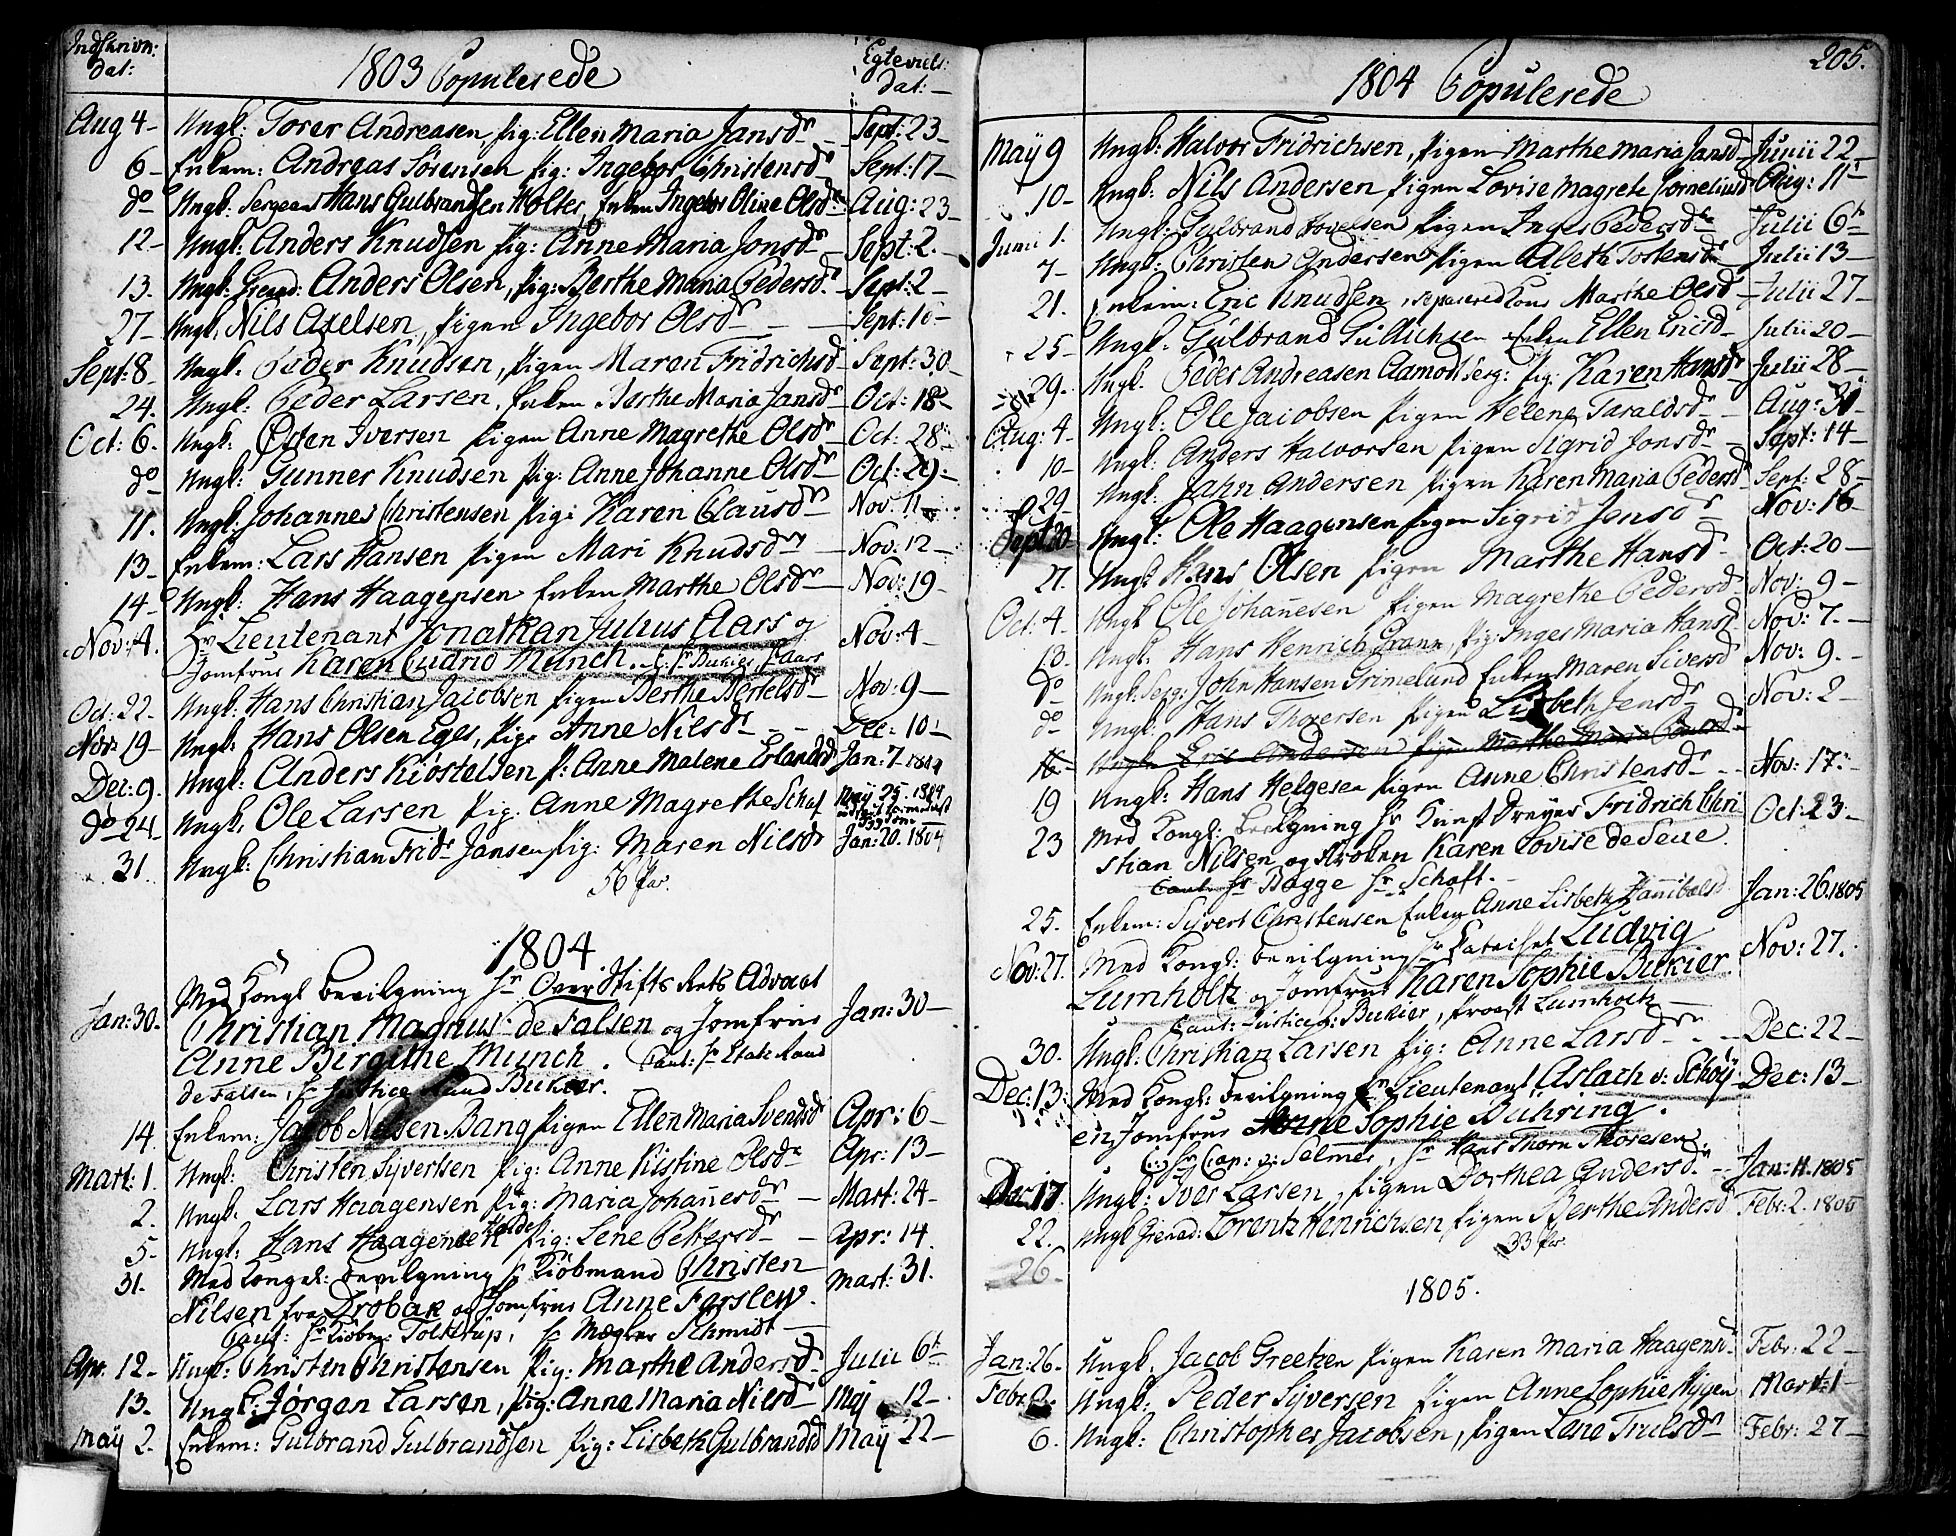 Indskrivn: dat: 1803 Copulerede Egtevies: dat:
Aug 4 Ungk: Torer Andreasen, pig: Ellen Maria Jansdr Sept: 23
6 Enkem: Andreas Sörensen pig: Ingebor Christensdr Sept: 17
do Ungk: Sergeant Hans Gulbrandsen Holter, Enken Ingebor Oline Olsdr Aug: 23
12 Ungk: Anders Knudsen pig: Anne Maria Jonsdr Sept: 2
13. Ungk: Grenad: Anders Olsen, pig: Berthe Maria Pedersd. Sept: 2
27 Ungk. Nils Axelsen, pigen Ingebor Olsdr Sept: 16
Sept: 8 Ungk. Peder Knudsen, pigen Maren Fridrichsd Sept: 30
24. Ungk: Peder Larsen, Enken Berthe Maria Jansdr Oct: 18
Oct: 6. Ungk: Østen Iversen pigen Anne Magrethe Olsdr Oct: 28
do Ungk: Gunner Knudsen pig: Anne Johanne Olsdr Oct: 29
11. Ungk: Johannes Christensen pig: Karen Clausdr Nov: 11
13 Enkem: Lars Hansen pigen Mari Knudsdr Nov: 12
14 Ungk: Hans Haagensen Enken Marthe Olsdr Nov: 19
Nov: 4. Hr Lieutenant Jonathan Julius Aars og Nov: 4
Jomfrue Karen Munch. C: Hr Bukier, Hr Aars
Oct: 22 Ungk: Hans Christian Jacobsen pigen Berthe Bertelsdr Nov: 9
Nov: 19 Ungk: Hans Olsen Eger, pig: Anne Nilsdr Dec: 10
Dec: 9. Ungk: Anders Kiostelsen p: Anne Malene Erlandsd Jan: 7 1804
do 24 Ungk. Ole Larsen pig: Anne Magrethe Schaf Maij 25 1804
31 Ungk: Christian Fridr Jansen pig: Maren Nilsdr Jan: 20. 1804
56 Par.
1804
Jan: 30. Med Kongl Bevilgning Hr Over Stifts Rets Advocat Jan: 30
Christian Magnus de Falsen og Jomfrue
Anne Birgithe Munch. Caut: Hr Etats Raad
de Falsen, Hr Justice Raad Bukier.
14 Enkem: Jacob Nilsen Bang pigen Ellen Maria Svendsdr Apr: 6
Mart: 1 Ungk: Christen Syvertsen pig: Anne Kistine Olsdr Apr: 13
2. Ungk. Lars Haagensen pig: Maria Johanesdr Mart: 24
5 Ungk: Hans Haagensen Holde pig: Lene Pettersdr Apr: 14
31. Med Kongel: Bevilgning Hr Kiöbmand Christen Mart: 31.
Nilsen fra Drøbak og Jomfrue Anne Forslew.
Caut: Hr Kiöbm: Tolstrup, Hr Mægler Schmidt
Apr. 12 Ungk: Christen Christensen pig: Marthe Andersdr Julii 6t
13. Ungk: Jørgen Larsen, pig: Anne Maria Nilsdr Maj 12
Maÿ 2. Enkem: Gulbrand Gulbrandsen pig: Lisbeth Gulbrandsd Maÿ 22
205.
1804 Copulerede
Maÿ 9 Ungk: Halvor Fridrichsen, pigen Marthe Maria Jansd Junii 22
10 Ungk: Nils Andersen pigen Lovise Magrete Corneliusd Aug: 11
Junii 1. Ungk: Gulbrand pigen Inger Pedersdr Julii 6t
7 Ungk: Christen Andersen pigen Aleth Tostensdr Julii 13
21. Enkem: Eric Knudsen, separered Kone Marthe Olsdr Julii 27
25 Ungk: Gulbrand Gullichsen Enken Ellen Ericsd Julii 20
29. Ungk. Peder Andreasen Aamodt Serg: pig: Karen Hansdr Julii 28
Aug: 4 Ungk: Ole Jacobsen pigen Helene Taraldsdr Aug: 31
10 Ungk: Anders Halvorsen pigen Sigrid Jonsdr Sept: 14
29 Ungk: Jahn Andersen pigen Karen Maria Pedersd Sept: 28
Sept 20 Ungk: Ole Haagensen pigen Sigrid Jensdr Nov: 16
27. Ungk: Hans Olsen pigen Marthe Hansd Oct: 20
Oct: 4 Ungk Ole Johanesen pigen Magrethe Pedersd Nov: 9
13. Ungk. Hans Henrich Grann, pig: Inger Maria Hansd Nov: 7.
do Ungk: Serg: John Hansen Grimelund Enken Maren Siversd Nov: 9.
do Ungk: Hans Thorersen pigen Lisbeth Jensdr Nov: 2
16. Ungk: Eric Andersen pigen Marthe Maria
19 Ungk: Hans Helgesen pigen Anne Christensdr Nov: 17.
23 Med Kongl: Bevilgning Hr Kunst Dreyer Fridrich Chri Oct: 23
stian Nilsen og Frøken Karen Lovise de Seue.
Caut: Hr Bagge Hr Schaft.
25. Enkem: Syvert Christensen Enken Anne Lisbeth Hanibalsd Jan: 26. 1805
Nov: 27. Med Kongl: Bevilgning Hr Catechet Ludvig Nov: 27.
Lumholtz og Jomfrue Karen Sophie Bukier
Caut: Justice R: Bukier, Provst Lumholtz
30. Ungk: Christian Larsen pig: Anne Larsdr Dec: 22
Dec: 13 Med Kongl: Bevilgning Hr Lieutenant Aslach v: Schøÿ Dec: 13
en Jomfrue Anne Sophie Bühring.
C: Hr Cap: v: Selmer, Hr Hans Thorn Thoresen.
Dec: 17. Ungk: Iver Larsen, pigen Dorthea Andersdr Jan: 11. 1805
22. Ungk Grenad: Lorentz Henrichsen pigen Berthe Andersd Febr: 2. 1805
33 Par.
26
1805.
Jan: 26. Ungk. Jacob Greetzen pigen Karen Maria Haagensdr Febr: 22
Febr: Ungk: Peder Syversen pigen Anne Sophie Nygen Mart: 1
6. Ungk: Christopher Jacobsen, pigen Lene Trulsdr Febr: 27